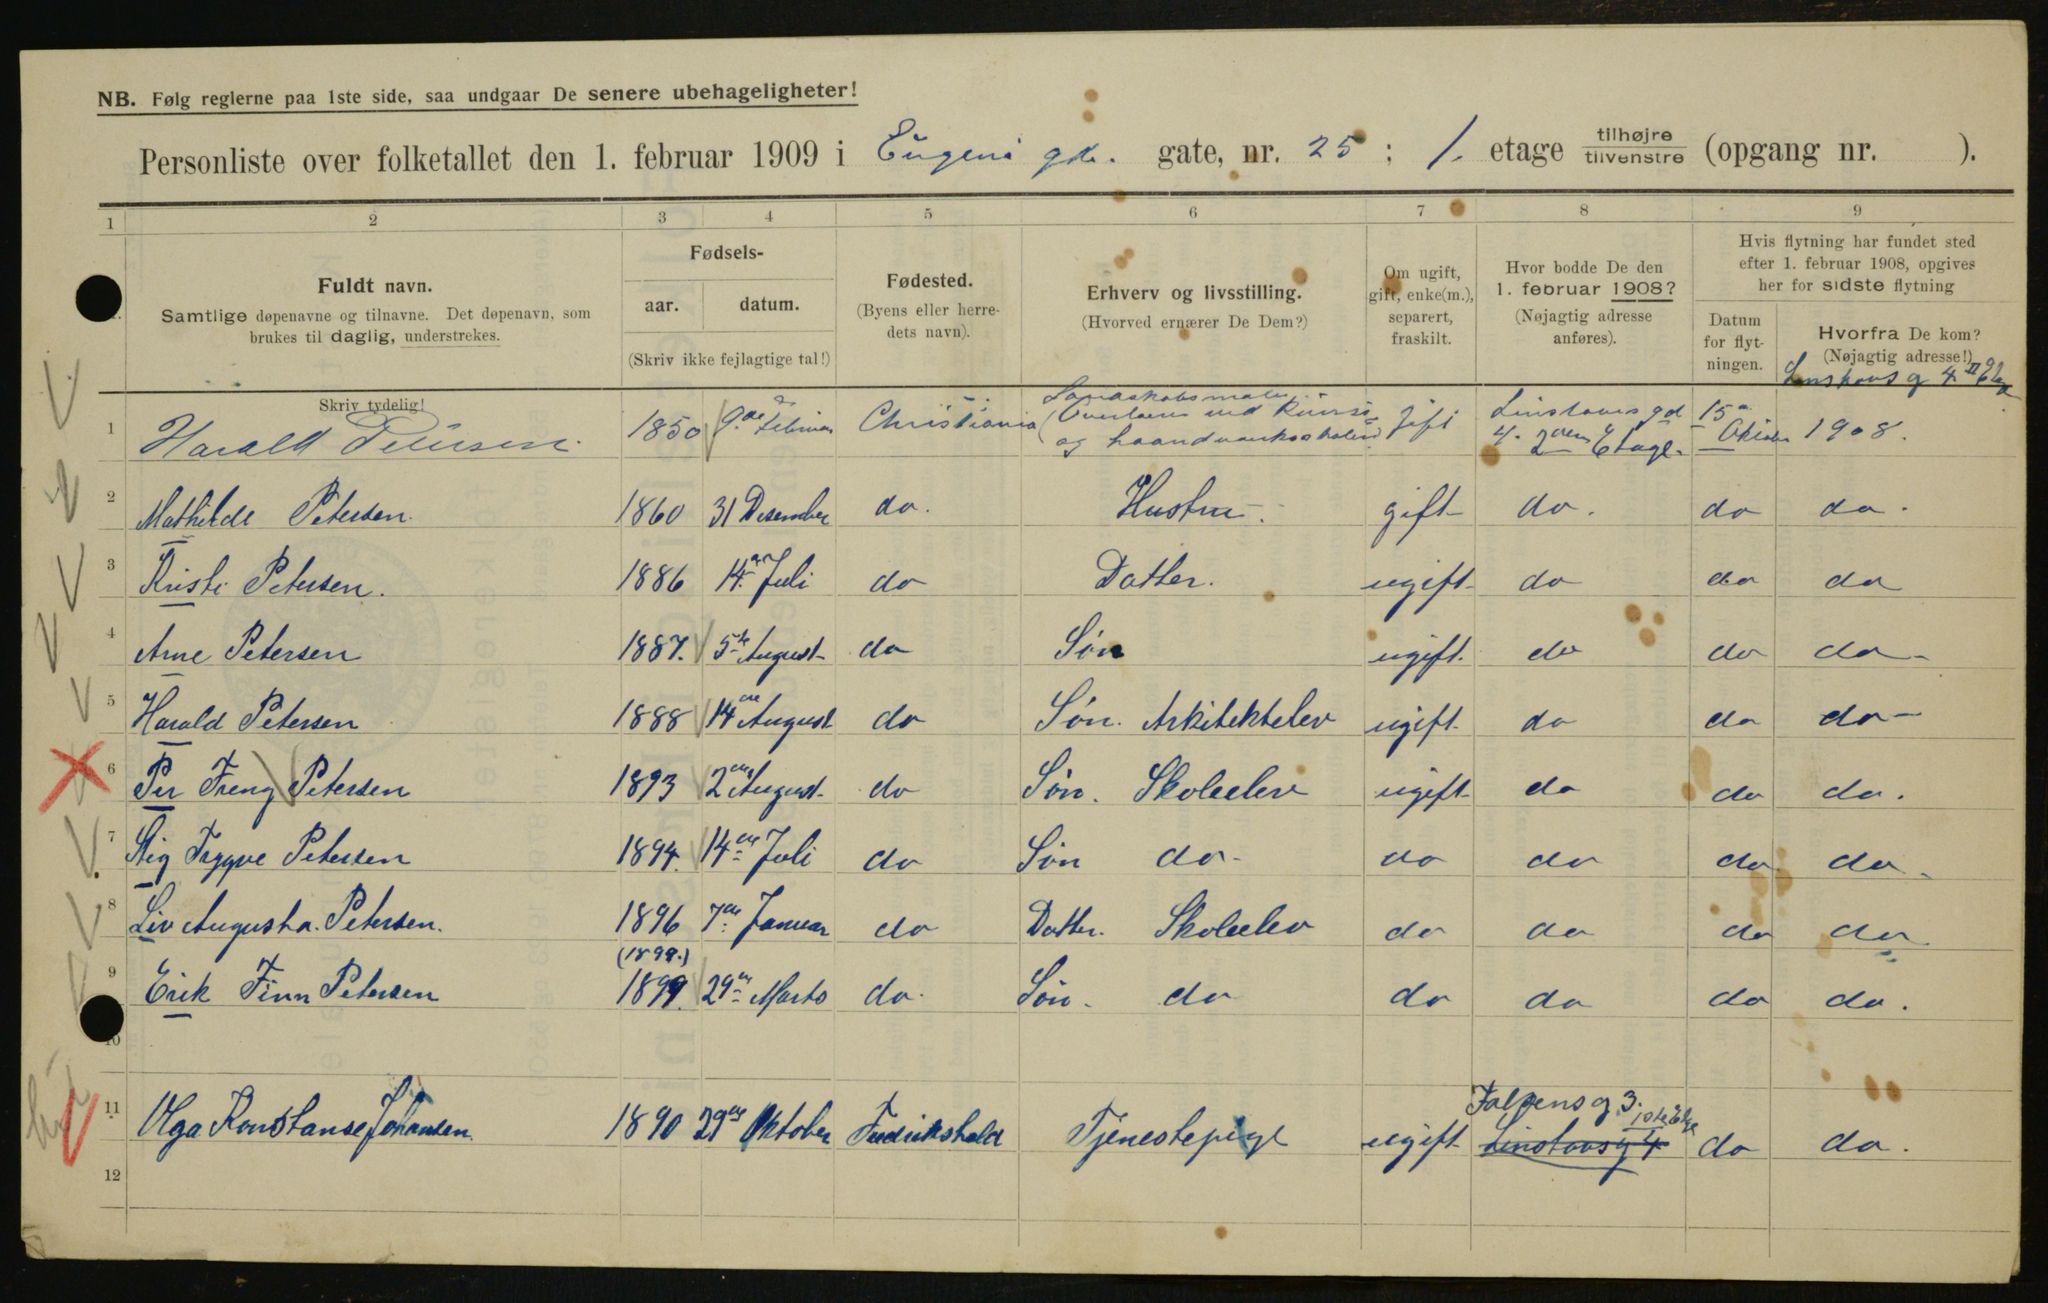 NB. Følg reglerne paa 1ste side, saa undgaar De senere ubehageligheter!
Personliste over folketallet den 1. februar 1909 i Eugeni gd. gate, nr. 25; 1. etage tilhøjre/tilvenstre (opgang nr. ).
1 2 3 4 5 6 7 8 9
Fuldt navn.
Samtlige døpenavne og tilnavne. Det døpenavn, som
brukes til daglig, understrekes.
Skriv tydelig!
Fødsels-
aar. datum.
(Skriv ikke fejlagtige tal!)
Fødested.
(Byens eller herre-
dets navn).
Erhverv og livsstilling.
(Hvorved ernærer De Dem?)
Om ugift,
gift, enke(m.),
separert,
fraskilt.
Hvor bodde De den
1. februar 1908?
(Nøjagtig adresse
anføres).
Hvis flytning har fundet sted
efter 1. februar 1908, opgives
her for sidste flytning
Datum
for flyt-
ningen.
Hvorfra De kom?
(Nøjagtig adresse!)
g 4 II Etag
1 Harald Petersen 1850 9de Februar Christiania Landskabsmaler (Overlærer ved Kunst- og haandverksskolen) gift Linstows gd 4. 2den Etage. 15de Oktober 1908.
2 Mathilde Petersen. 1860 31 Desember do. Hustru. gift do. do do.
3 Kristi Petersen. 1886 14de Juli do Datter. ugift do do do
4 Arne Petersen 1887. 5te August do Søn ugift do do do
5 Harald Petersen 1888 14de August do Søn. Arkitektelev ugift do do do
6 Per Freng Petersen 1893 2den August do Søn. Skoleelev ugift do do do.
7 Stig Trygve Petersen 1894. 14de Juli do Søn do do do do do.
8 Liv Augusta. Petersen. 1896 7de Januar do Datter. Skoleelev do do do do
(1899.)
9 Erik Finn Petersen 1899. 29de Marts do. Søn. do do do do do.
10
Falsensg 3. 1ste Etge
11 Olga Konstanse Johansen. 1890 29de Oktober Fredrikshald Tjenestepige ugift Linstowsg 4 do do.
12